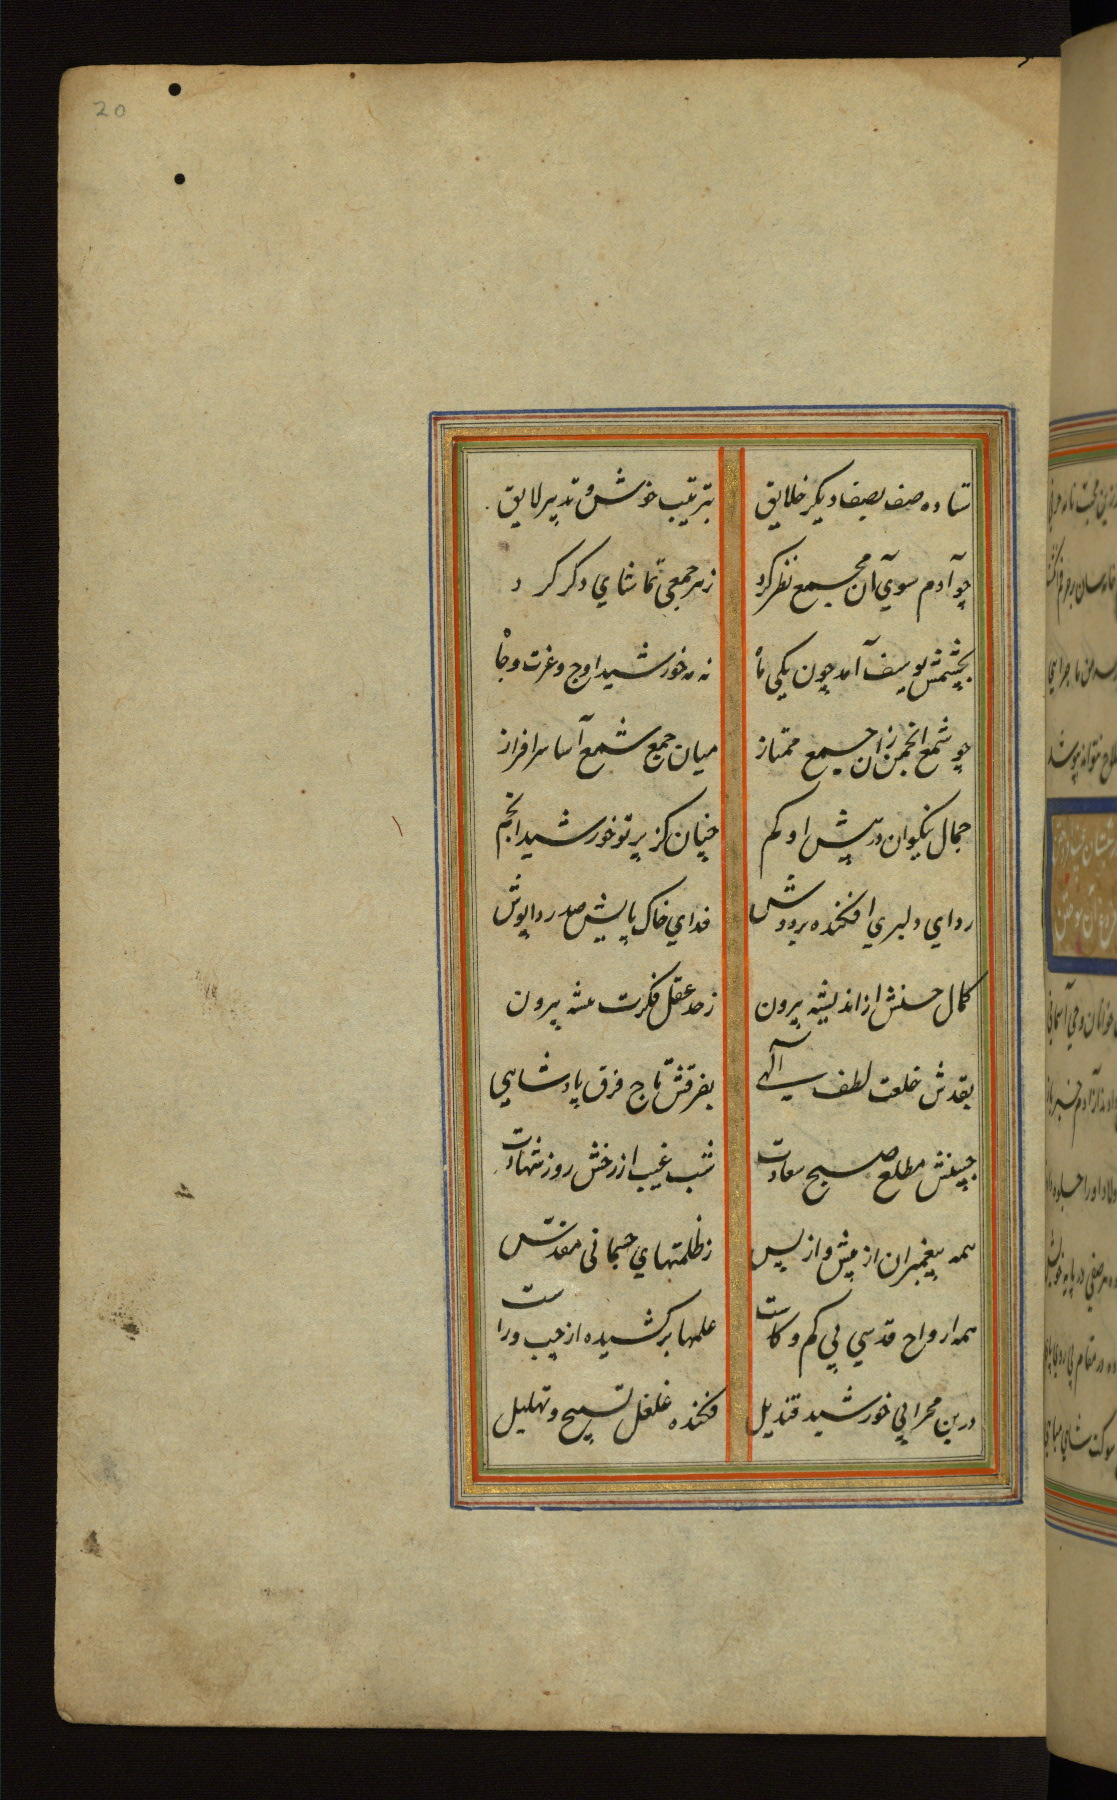 20
ستاده صف بصف دیگر خلایق
بترتیب خوش و تدبیر لایق
چو آدم سوی آن مجمع نظر کرد
زهر جمعی تماشای دگر کرد
بچشمش یوسف آمد چون یکی ماه
نه مه خورشید اوج و عزت و جاه
چو شمع انجمن زان جمع ممتاز
میان جمع شمع آسا سرافراز
جمال نیکوان در پیش او کم
چنان کز پرتو خورشید انجم
ردای دلبری افکنده بر دوش
فدای خاک پایش صد ردا پوش
کمال حسنش از اندیشه بیرون
ز حد عقل فکرت پیشه بیرون
بقدش خلعت لطف آلهی
بفرقش تاج فرق پادشاهی
جبینش مطلع صبح سعادت
شب غیب از رخش روز شهادت
همه پیغمبران از پیش و از پس
ز ظلمتهای جسمانی مقدس
همه ارواح قدسی بی کم و کاست
علمها برکشیده از چپ و راست
درین محرابی خورشید قندیل
فکنده غلغل تسبیح و تهلیل